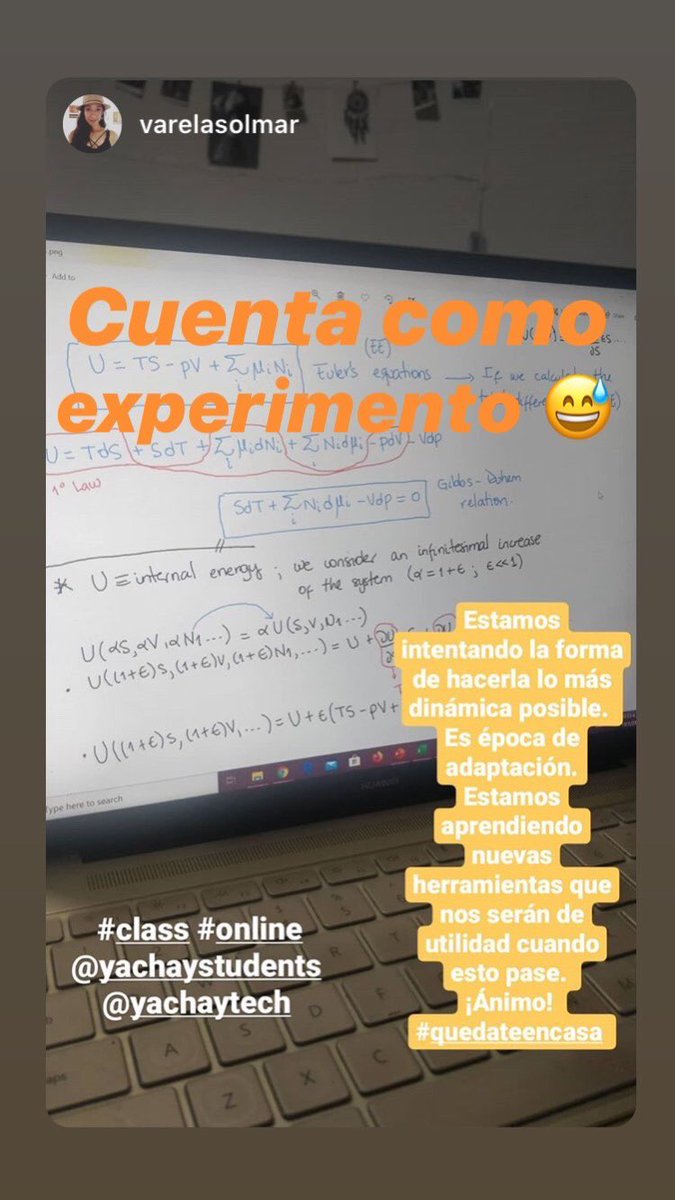 varelasolmar
.png
Add to
Cuenta como
experimento 😅
U = TS - pV + Σᵢ μᵢNᵢ
(EE)
Euler's equations → If we
U = TdS + SdT + Σᵢ μᵢdNᵢ + Σᵢ Nᵢdμᵢ - pdV - Vdp
1º Law
SdT + Σᵢ Nᵢdμᵢ - Vdp = 0
Gibbs-Duhem
relation.
* U ≡ internal energy ; we consider an infinitesimal increase
of the system (α = 1 + ϵ ; ϵ << 1)
U(αS, αV, αN₁ ...) = αU(S, V, N₁ ...)
· U((1+ϵ)S, (1+ϵ)V, (1+ϵ)N₁, ...) = U +
· U((1+ϵ)S, (1+ϵ)V, ...) = U + ϵ(TS - pV +
Type here to search
HUAWEI
Estamos
intentando la forma
de hacerla lo más
dinámica posible.
Es época de
adaptación.
Estamos
aprendiendo
nuevas
herramientas que
nos serán de
utilidad cuando
esto pase.
¡Ánimo!
#quedateencasa
#class #online
@yachaystudents
@yachaytech
A S D F
Z X C